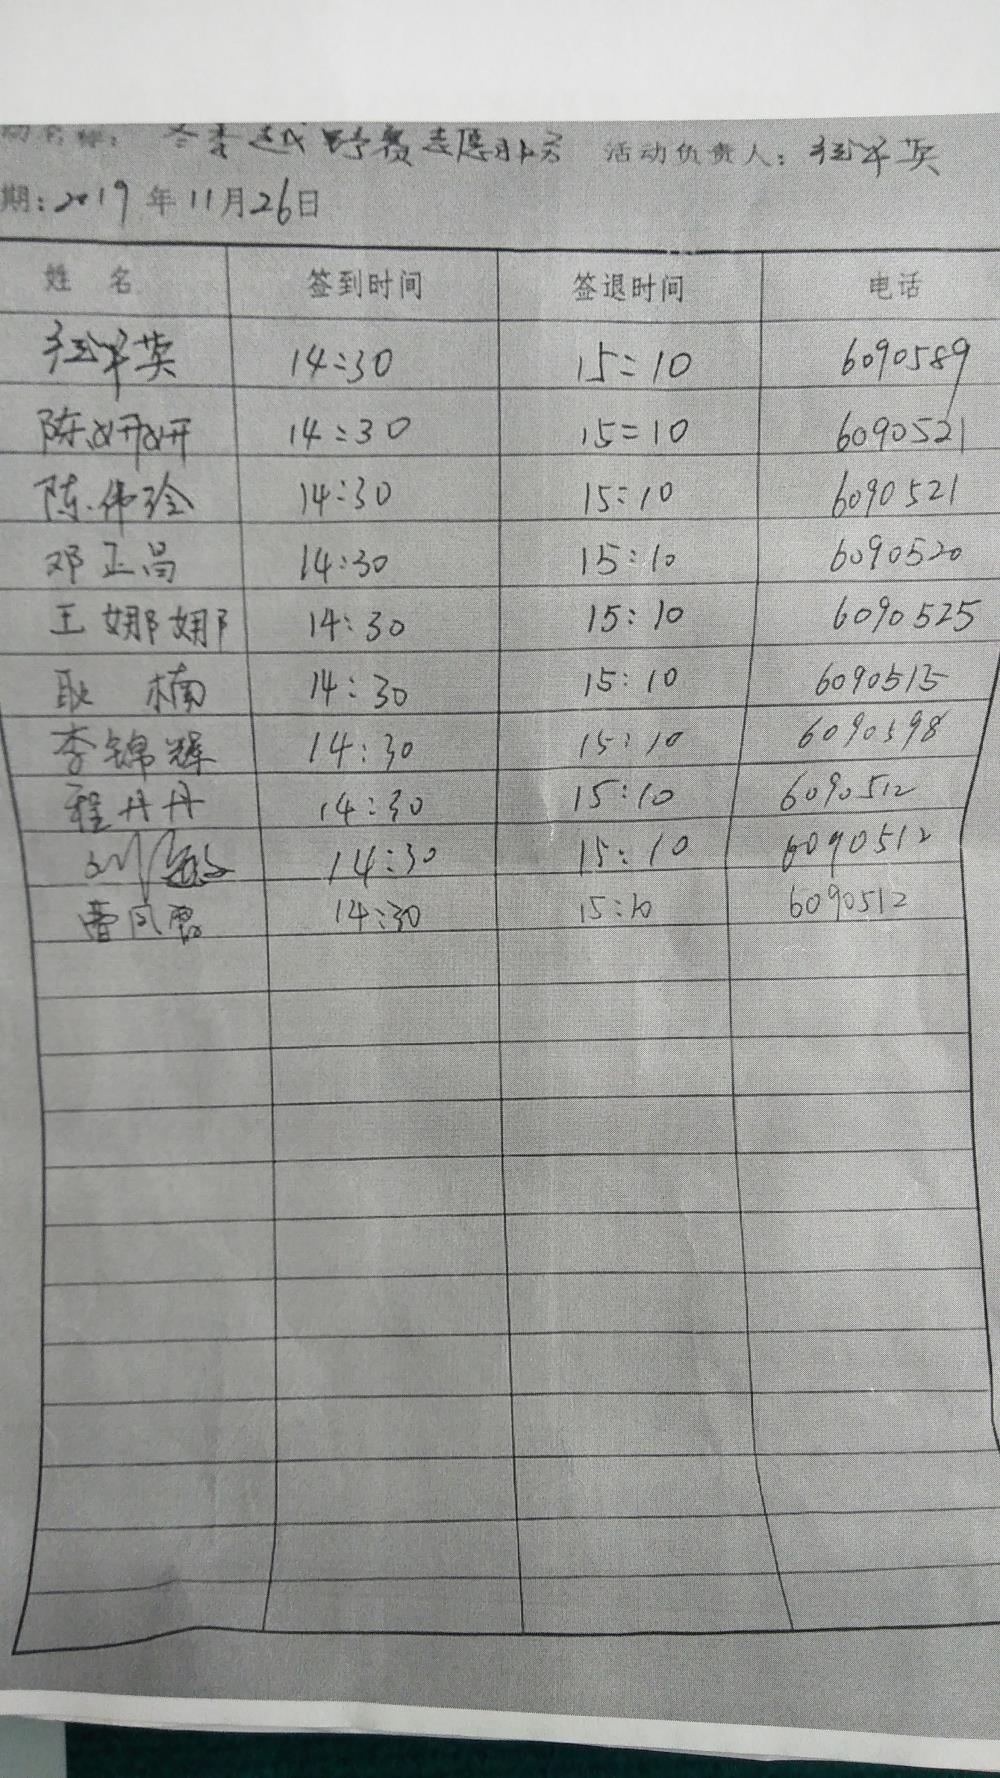 动名称：冬季越野赛志愿服务 活动负责人：
期：2019年11月26日
姓 名 签到时间 签退时间 电话
14:30 15:10 6090589
陈妍妍 14:30 15:10 6090521
陈伟玲 14:30 15:10 6090521
邓正昌 14:30 15:10 6090520
王娜娜 14:30 15:10 6090525
耿楠 14:30 15:10 6090515
李锦辉 14:30 15:10 6090598
程丹丹 14:30 15:10 6090512
14:30 15:10 6090512
曹凤霞 14:30 15:10 6090512